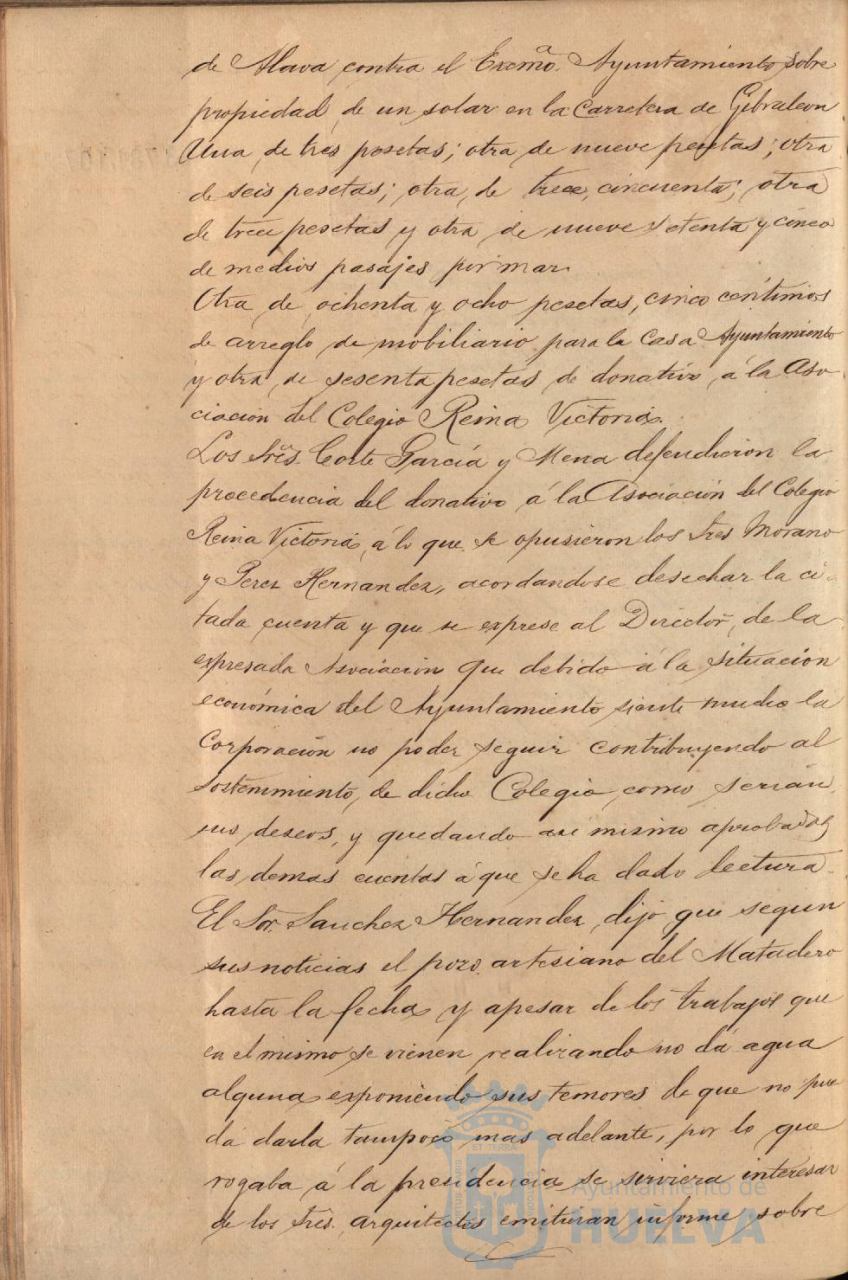 de Alava contra el Excmo. Ayuntamiento sobre
propiedad de un solar en la Carretera de Gibraleon
Una de tres pesetas; otra de nueve pesetas; otra
de seis pesetas; otra de trece, cincuenta; otra
de trece pesetas y otra de nueve setenta y cinco
de medios pasajes por mar.
Otra de ochenta y ocho pesetas, cinco centimos
de arreglo de mobiliario para la Casa Ayuntamiento
y otra de sesenta pesetas de donativo á la Aso-
ciación del Colegio Reina Victoria.
Los Sres. Corte García y Mena defendieron la
procedencia del donativo á la Asociación del Colegio
Reina Victoria, á lo que se opusieron los Sres Morano
y Perez Hernandez, acordandose desechar la ci-
tada cuenta y que se exprese al Director de la
expresada Asociación que debido á la situación
económica del Ayuntamiento siente mucho la
Corporación no poder seguir contribuyendo al
sostenimiento de dicho Colegio como serían
sus deseos, y quedando asi mismo aprobadas
las demas cuentas á que se ha dado lectura.
El Sor. Sanchez Hernandez, dijo que segun
sus noticias el pozo artesiano del Matadero
hasta la fecha y apesar de los trabajos que
en el mismo se vienen realizando no dá agua
alguna exponiendo sus temores de que no pue
da darla tampoco mas adelante, por lo que
rogaba á la presidencia se sirviera interesar
de los Sres. arquitectos emitieran informe sobre
Ayuntamiento de
HUELVA